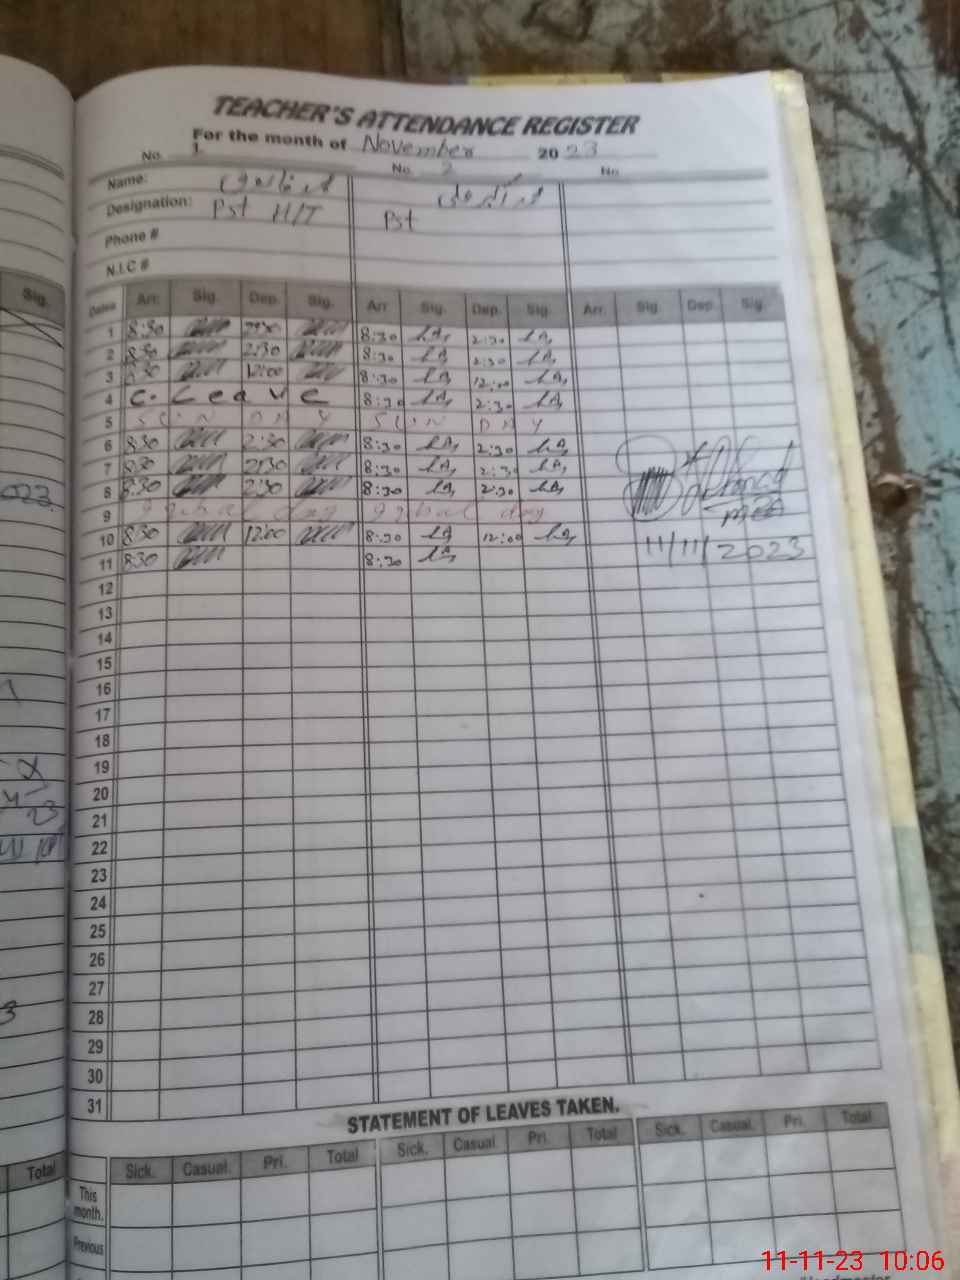 TEACHER'S ATTENDANCE REGISTER
For the month of November 2023
No. 1. No. 2 No.
Name:
Designation: Pst H/T Pst
Phone #
N.I.C #
Sig.
Dates Arr. Sig. Dep. Sig. Arr. Sig. Dep. Sig. Arr. Sig. Dep. Sig.
1 8:30 2:30 8:30 2:30
2 8:30 2:30 8:30 2:30
3 8:30 12:00 8:30 12:00
4 C. Leave 8:30 2:30
5 SUN DAY SUN DAY
6 8:30 2:30 8:30 2:30
7 8:30 2:30 8:30 2:30
8 8:30 2:30 8:30 2:30
9 Iqbal day Iqbal day
10 8:30 12:00 8:30 12:00
11 8:30 8:30
11/11/2023
12
13
14
15
16
17
18
19
20
21
22
23
24
25
26
27
28
29
30
31
STATEMENT OF LEAVES TAKEN.
Total Sick. Casual. Pri. Total Sick. Casual. Pri. Total Sick. Casual. Pri. Total
This month.
Previous
11-11-23 10:06